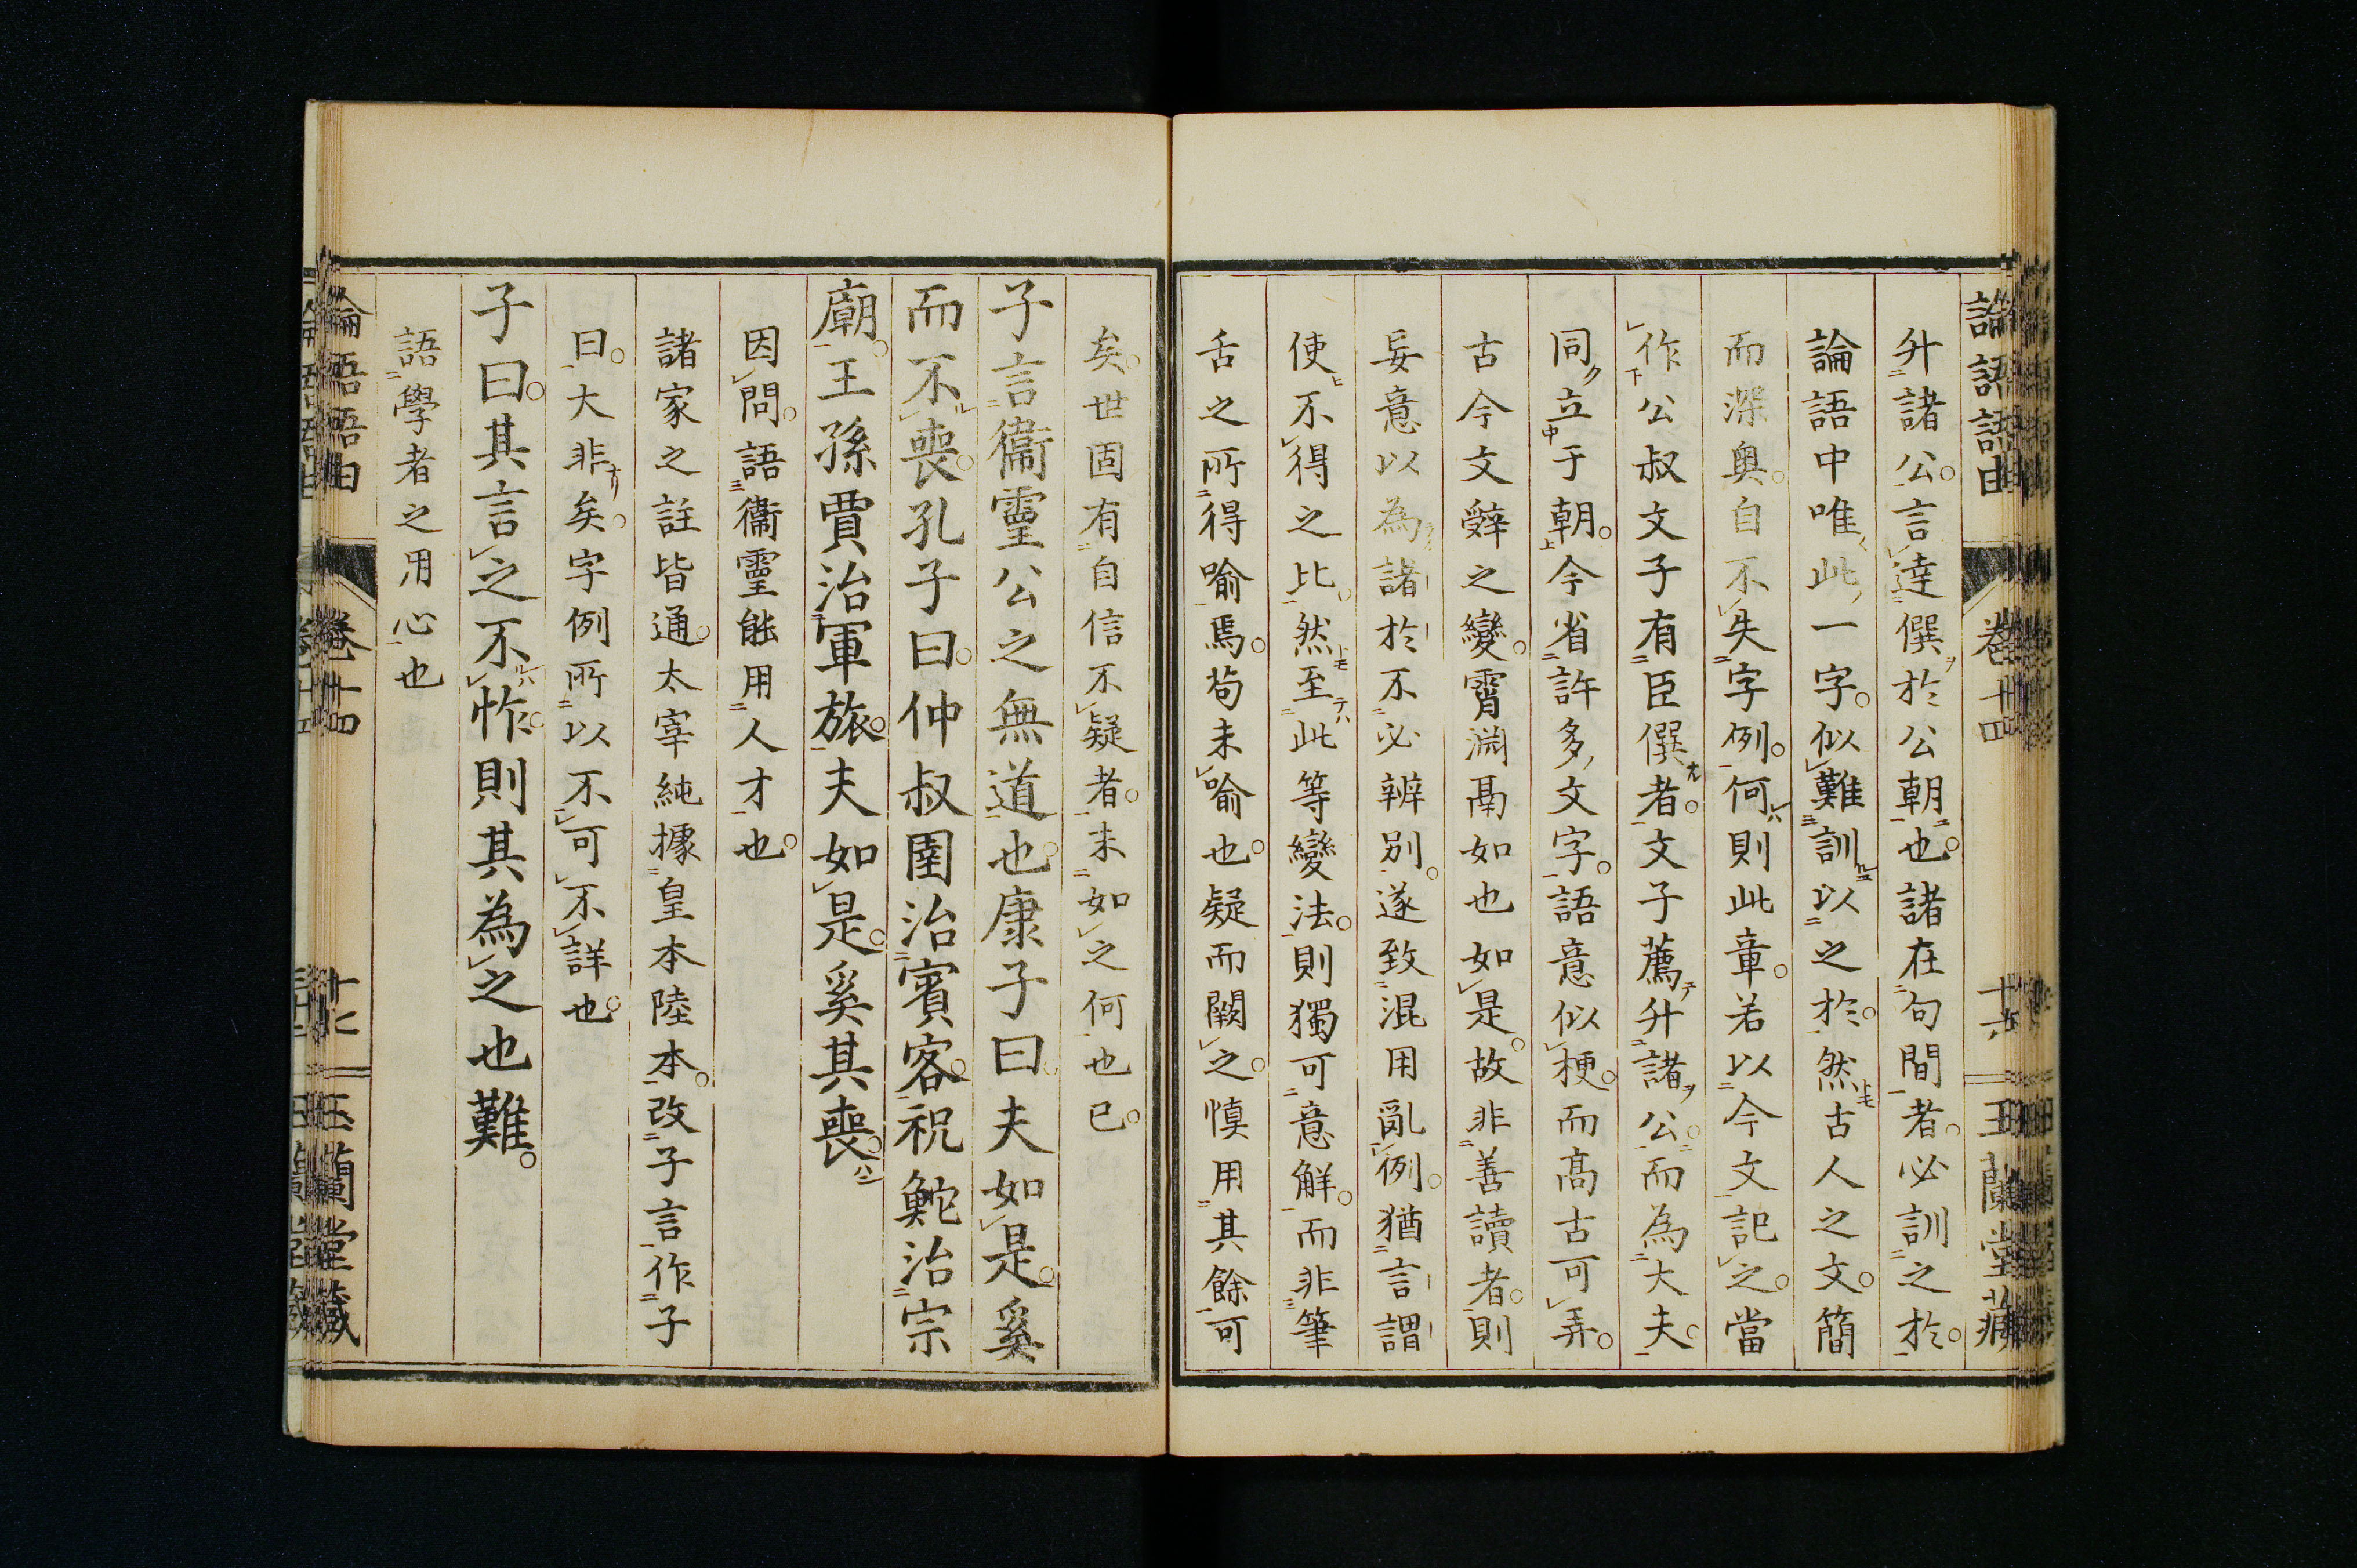 論語語由 卷十四 十六 玉蘭堂藏
升諸公。言達僎於公朝也。諸在句間者。必訓之於。
論語中唯此一字。似難訓以之於。然古人之文。簡
而深奧。自不失字例。何則此章。若以今文記之。當
作公叔文子有臣僎者。文子薦升諸公。而為大夫。
同立于朝。今省許多文字。語意似梗。而高古可弄。
古今文辭之變。霄淵鬲如也如是。故非善讀者。則
妄意以為諸於不必辨別。遂致混用亂例。猶言謂
使不得之比。然至此等變法。則獨可意解。而非筆
舌之所得喻焉。苟未喻也。疑而闕之。慎用其餘可
矣。世固有自信不疑者。未如之何也已。
子言衞靈公之無道也。康子曰。夫如是。奚
而不喪。孔子曰。仲叔圉治賓客。祝鮀治宗
廟。王孫賈治軍旅。夫如是。奚其喪。
因問。語衞靈能用人才也。
諸家之註皆通。太宰純據皇本陸本。改子言作子
曰。大非矣。字例所以不可不詳也。
子曰。其言之不怍。則其為之也難。
語學者之用心也
論語語由 卷十四 十七 玉蘭堂藏